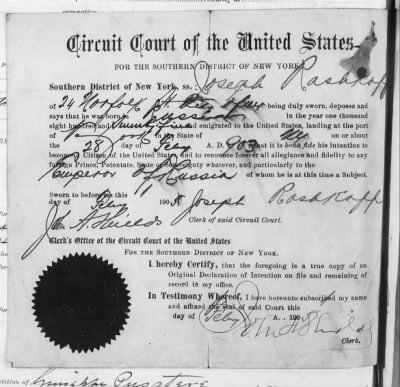 Circuit Court of the United States
FOR THE SOUTHERN DISTRICT OF NEW YORK
Southern District of New York, ss: Joseph Rashkoff
of 24 Norfolk St City being duly sworn, deposes and
says that he was born in Russia in the year one thousand
eight hundred and and emigrated to the United States, landing at the
port of in the State of on or about
the 28 day of Feby A. D. 903 that it is bona fide his intention to
become a Citizen of the United States, and to renounce forever all allegiance and fidelity to any
Foreign Prince, Potentate, State or whatever, and particularly to the
Emperor of Russia of whom he is at this time a Subject.
Sworn to before me this
day of Feby 190 Joseph Rashkoff
John A. Shields Clerk of said Circuit Court.
Clerk's Office of the Circuit Court of the United States
FOR THE SOUTHERN DISTRICT OF NEW YORK.
I hereby Certify, that the foregoing is a true copy of an
Original Declaration of Intention on file and remaining of
record in my office.
In Testimony Whereof, I have hereunto subscribed my name
and affixed the seal of said Circuit Court this
day of Feby A. 190
John A. Shields
Clerk.